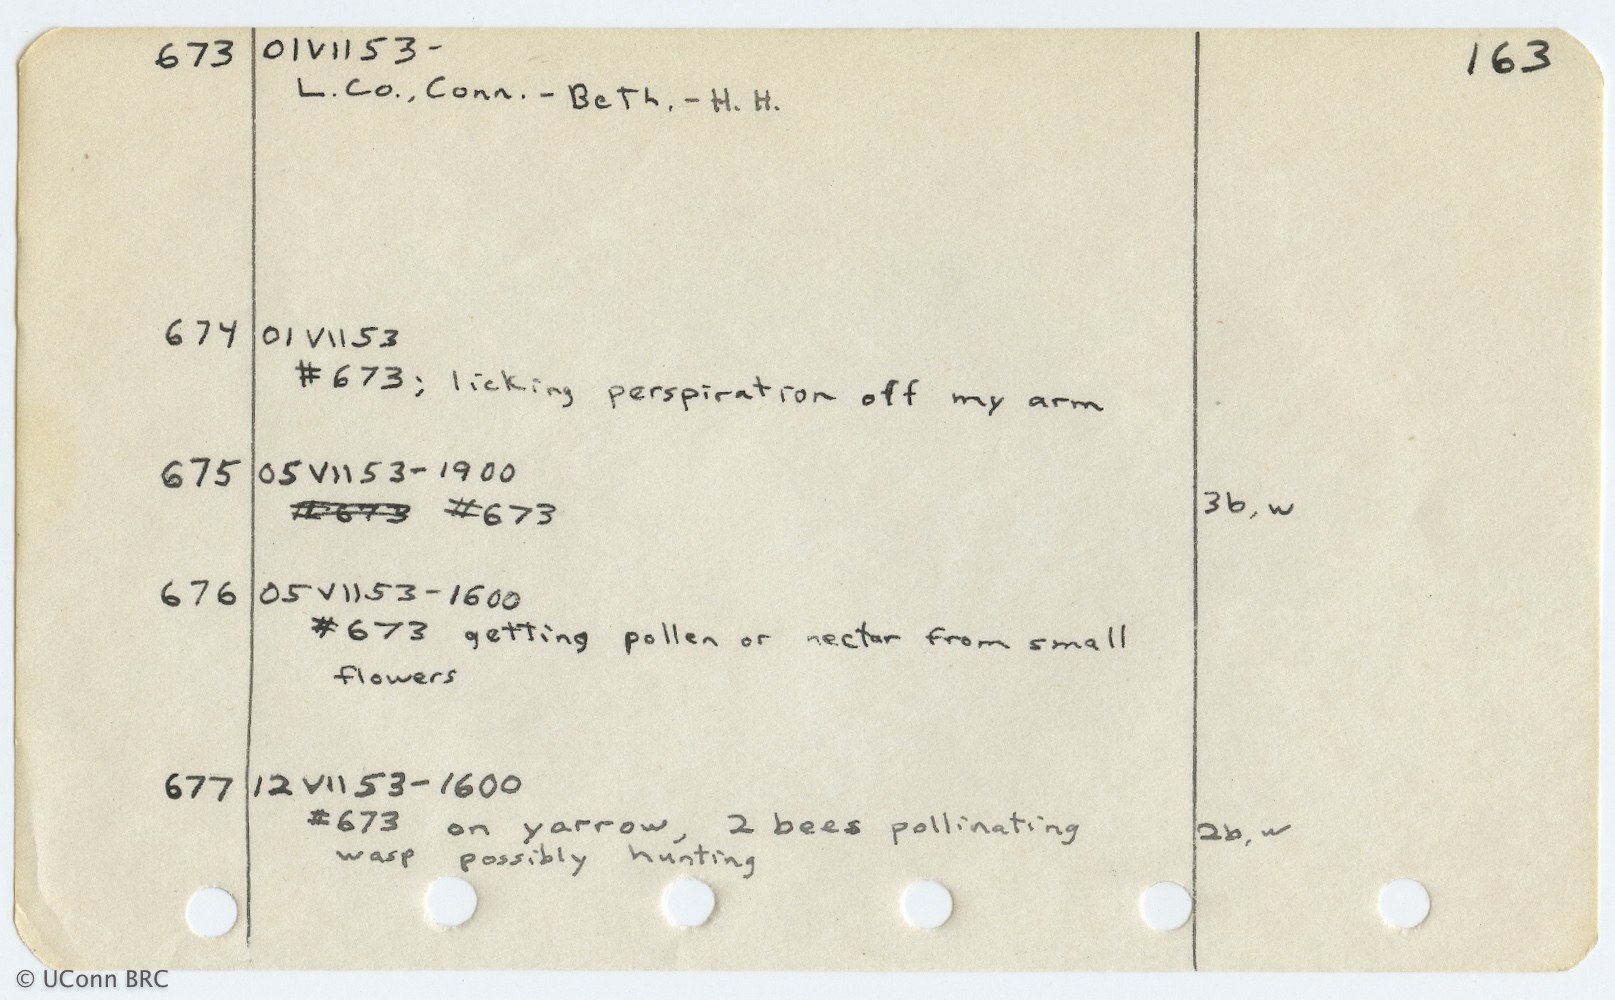 163
673 01VII53-
L.Co., Conn. - Beth. - H. H.
674 01VII53
#673; licking perspiration off my arm
675 05VII53-1900
#673 #673
3b, w
676 05VII53-1600
#673 getting pollen or nectar from small
flowers
677 12VII53-1600
#673 on yarrow, 2 bees pollinating
2b, w
wasp possibly hunting
© UConn BRC